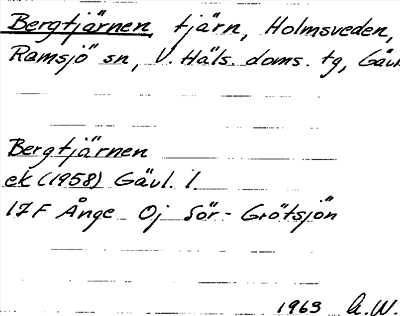 Bergtjärnen, tjärn, Holmsveden,
Ramsjö sn, V. Häls. doms. tg, Gävl.
Bergtjärnen
ek (1958) Gävl. l.
17F Ånge Oj Sör-Grötsjön
1963 A.W.